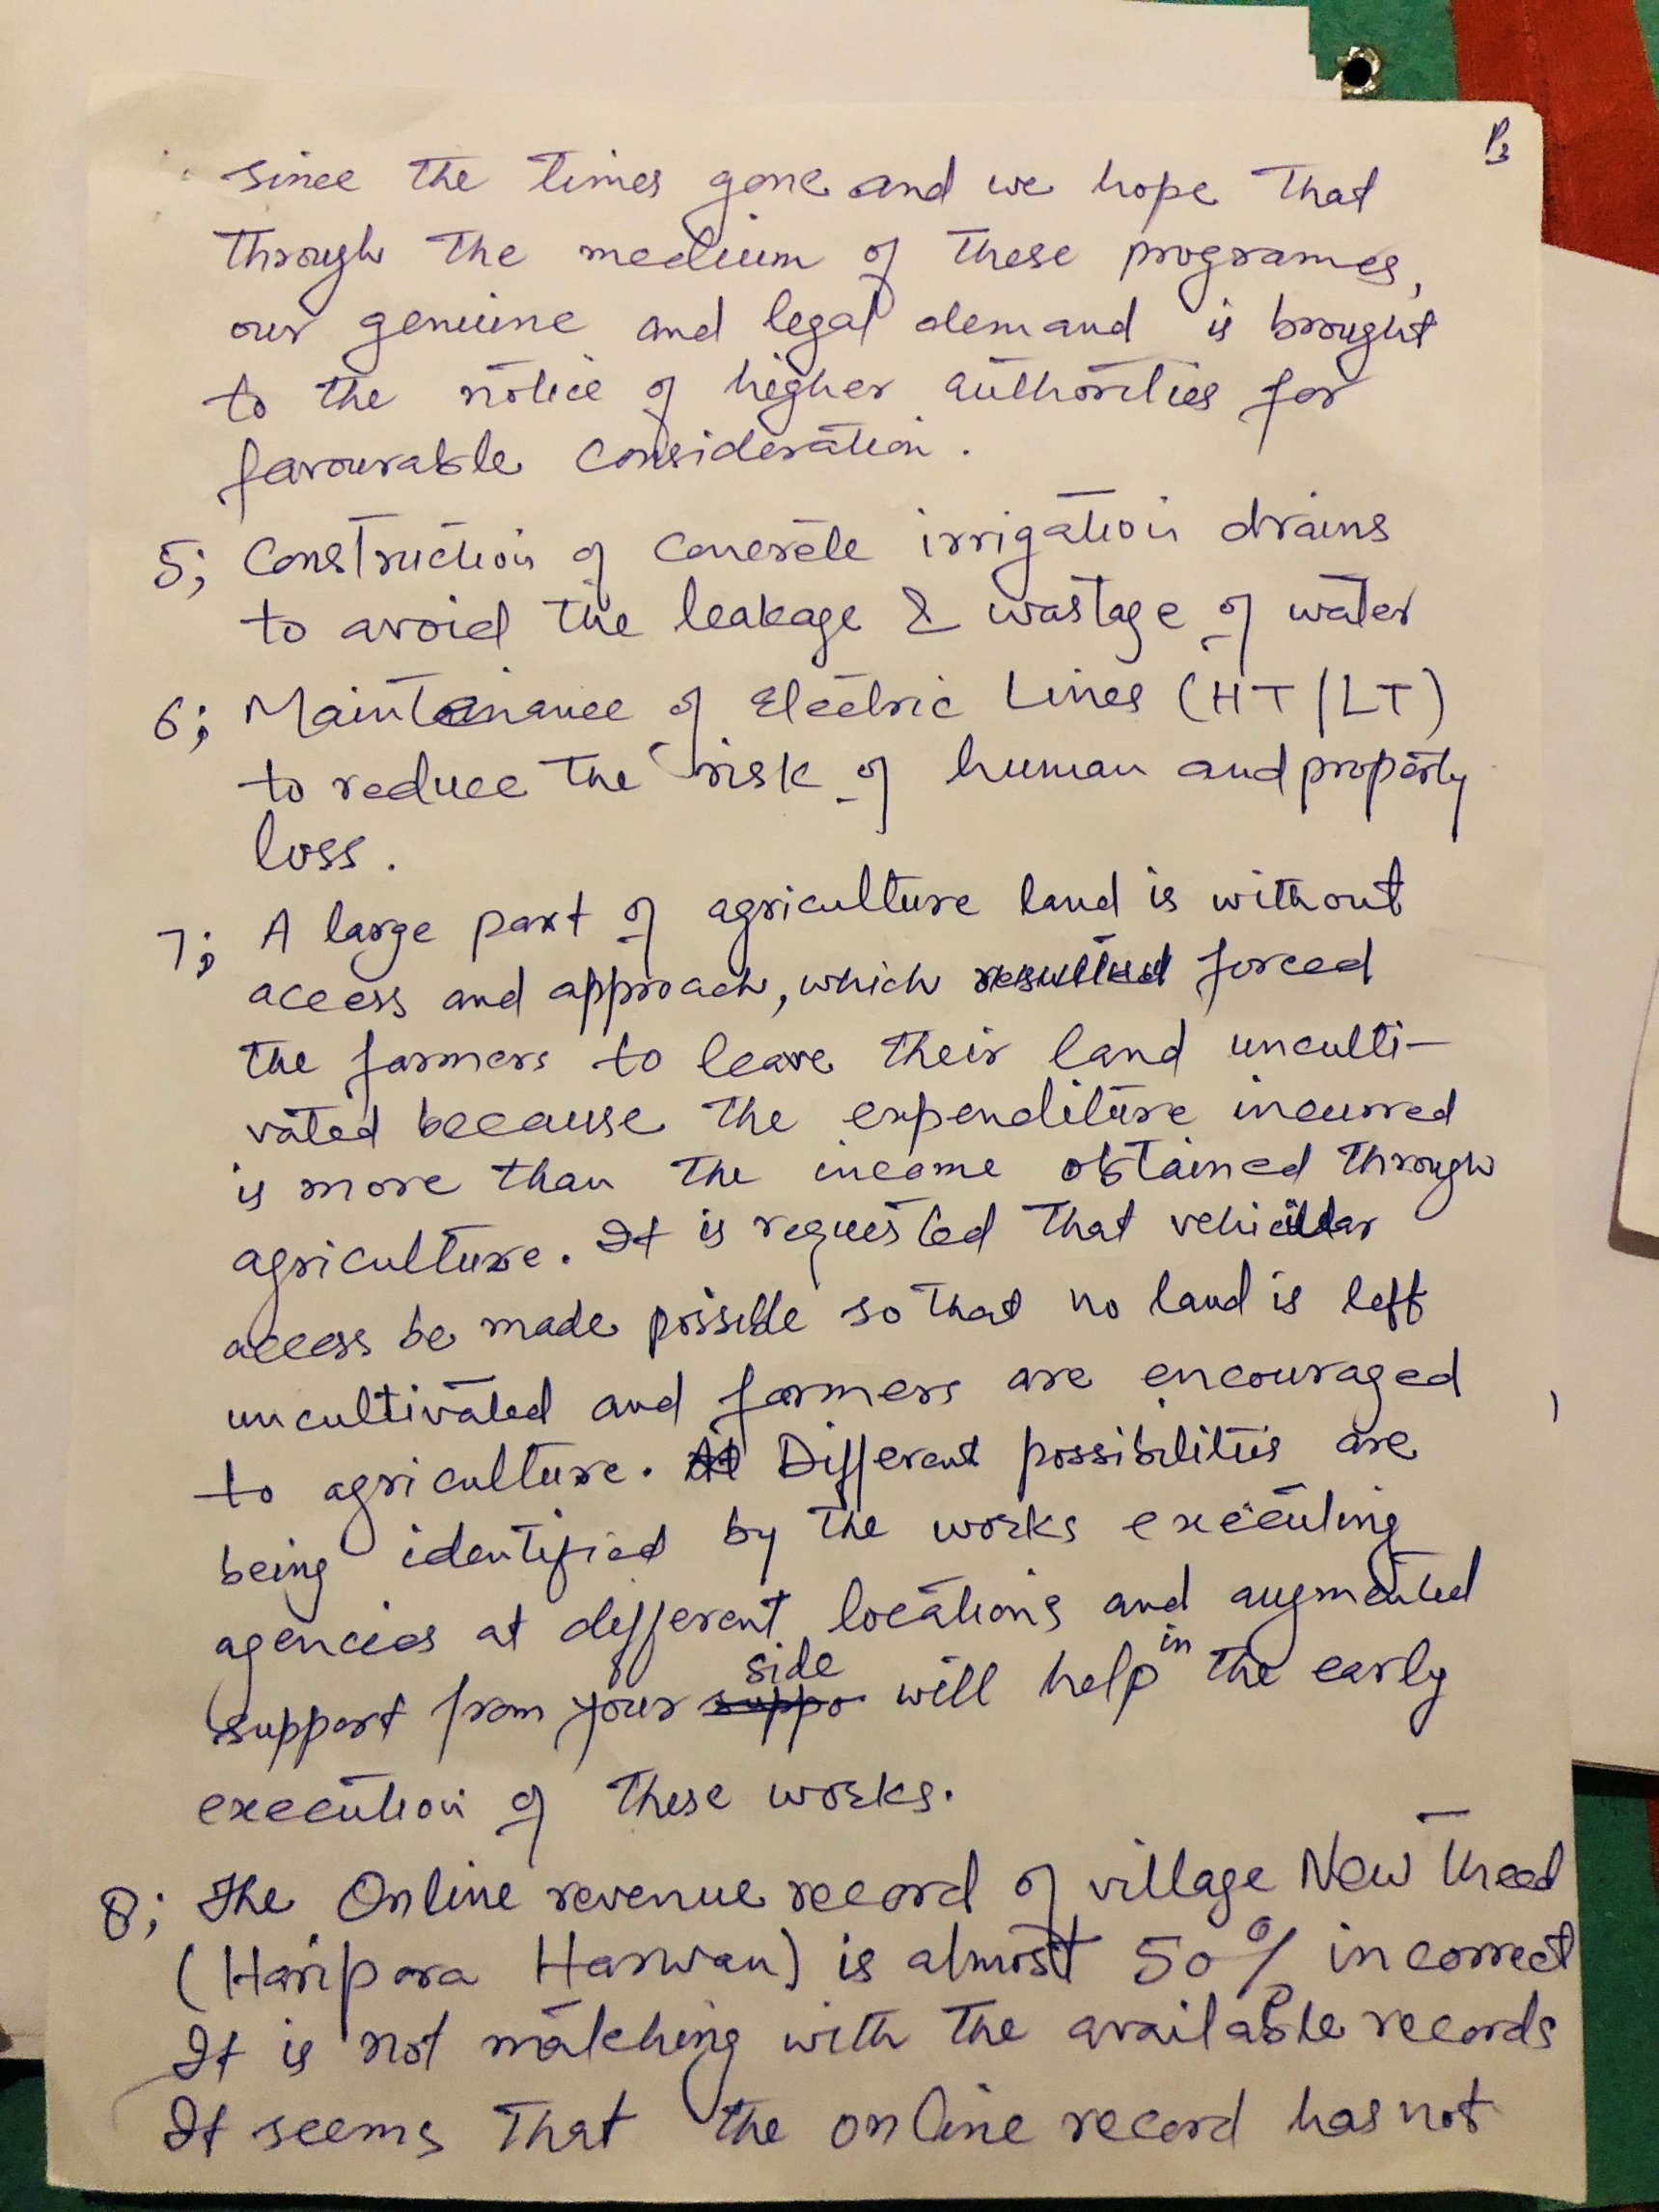 P3
since the times gone and we hope that
through the medium of these programes,
our genuine and legal demand is brought
to the notice of higher authorities for
favourable consideration.
5; Construction of concrete irrigation drains
to avoid the leakage & wastage of water
6; Maintenance of Electric Lines (HT/LT)
to reduce the risk of human and property
loss.
7; A large part of agriculture land is without
access and approach, which resulted forced
the farmers to leave their land unculti-
vated because the expenditure incurred
is more than the income obtained through
agriculture. It is requested that vehicular
access be made possible so that no land is left
uncultivated and farmers are encouraged
to agriculture. Different possibilities are
being identified by the works executing
agencies at different locations and augmented
support from your side will help in the early
execution of these works.
8; The Online revenue record of village New Theed
(Haripora Harwan) is almost 50% incorrect
It is not matching with the available records
It seems that the online record has not